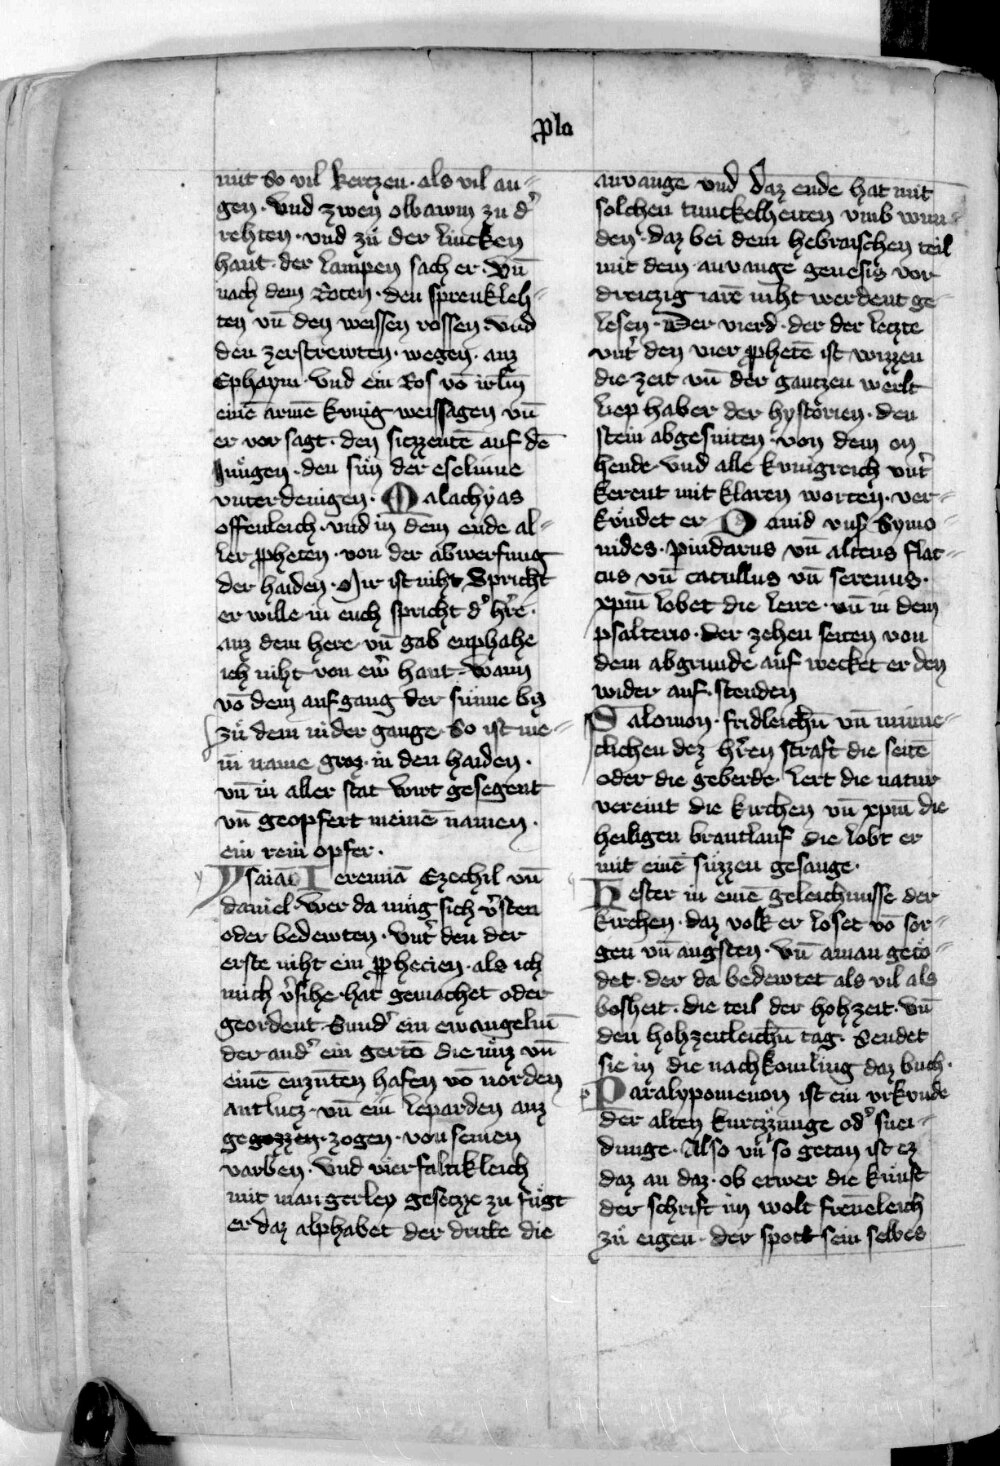 pla
mit so vil kertzen · als vil au-
gen · vnd zwen olbawm zu dˀ
rehten · vnd zů der lincken
hant · der lampen sach er · vn̄
nach dem Roten · den sprenkleh-
ten vn̄ den weissen rossen · vnd
den zerstrewten · wegen · auz
Ephaym · vnd ein Ros vō irlm̄
einē armē kvnig weissagen vn̄
er vor sagt · den sitzzentē auf dē
Jungen · den sůn der eselinne
vnterdenigen · Malachyas
offenleich · vnd in dem ende al-
ler ꝓheten · von der abwerfung
der haiden · Mir ist niht Spricht
er wille in euch spricht dˀ hˀre ·
auz dem here vn̄ gab enphahe
ich niht von ewˀ hant - wann
vō dem aufgang der sunne biz
zů dem nider gange · So ist me-
in name groz · in den haiden ·
vn̄ in aller stat wirt gesegent
vn̄ geopfert meinē namen ·
ein rein opfer ·
Ysaiā Ieremiā Ezechil vn̄
daniel · wer da mug sich vˀsten
oder bedewten · vntˀ den der
erste niht ein ꝓphecien · als ich
mich vˀsihe · hat gemachet oder
geordent · Sundˀ ein ewangeliū
der andˀ ein gertō die nůz vn̄
einē enzunten hafen vō norden
antlucz · vn̄ ein leparden auz
gegozzen · zogen · von seinen
varben · vnd vierfaltikleich
mit mangerley gesetzze zu fugt
er daz alphabet der dritte die
anvange vnd daz ende hat mit
solchen tunckelheiten vmb wun
den · daz bei dem hebraischen teil
mit dem anvange genesis vor
dreizzig iarē niht werdent ge
lesen · Der vierd · der der letzte
vntˀ den vier ꝓhetē ist wizzen
die zeit vn̄ der gantzen werlt
liep haber der hystorien · den
stein abgesniten · von dem on
hende · vnd alle kvnigreich vntˀ
kerent mit klaren worten · ver-
kvndet er · Dauid vnß Symo-
nides · pindarus vn̄ alteus flac-
cus vn̄ catullus vn̄ serenus ·
xpm̄ lobet die leire · vn̄ in dem
psalterio · der zehen seiten von
dem abgrunde auf wecket er den
wider auf stenden
Salomon · fridleichn̄ vn̄ minne-
clichen dez hˀren straft die seitē
oder die geberde · lert die natur
vereint die kirchen vn̄ xpm̄ die
heiligen brautlauf die lobt er
mit einē suzzen gesange ·
Hester in einē geleichnusse der
kirchen · daz volk er loset vō sor-
gen vn̄ angsten · vn̄ aman getö-
det · der da bedewtet als vil als
bosheit · die teil der hohzeit · vn̄
den hohzeitleichn̄ tag · Sendet
sie in die nachkomling daz buch ·
Paralypomenon ist ein vrkvnde
der alten kurtzzunge odˀ snei-
dunge · Also vn̄ so getan ist ez
daz an daz · ob etwer die kunst
der schrift im wolt freueleich
zů eigen · der spott sein selbes